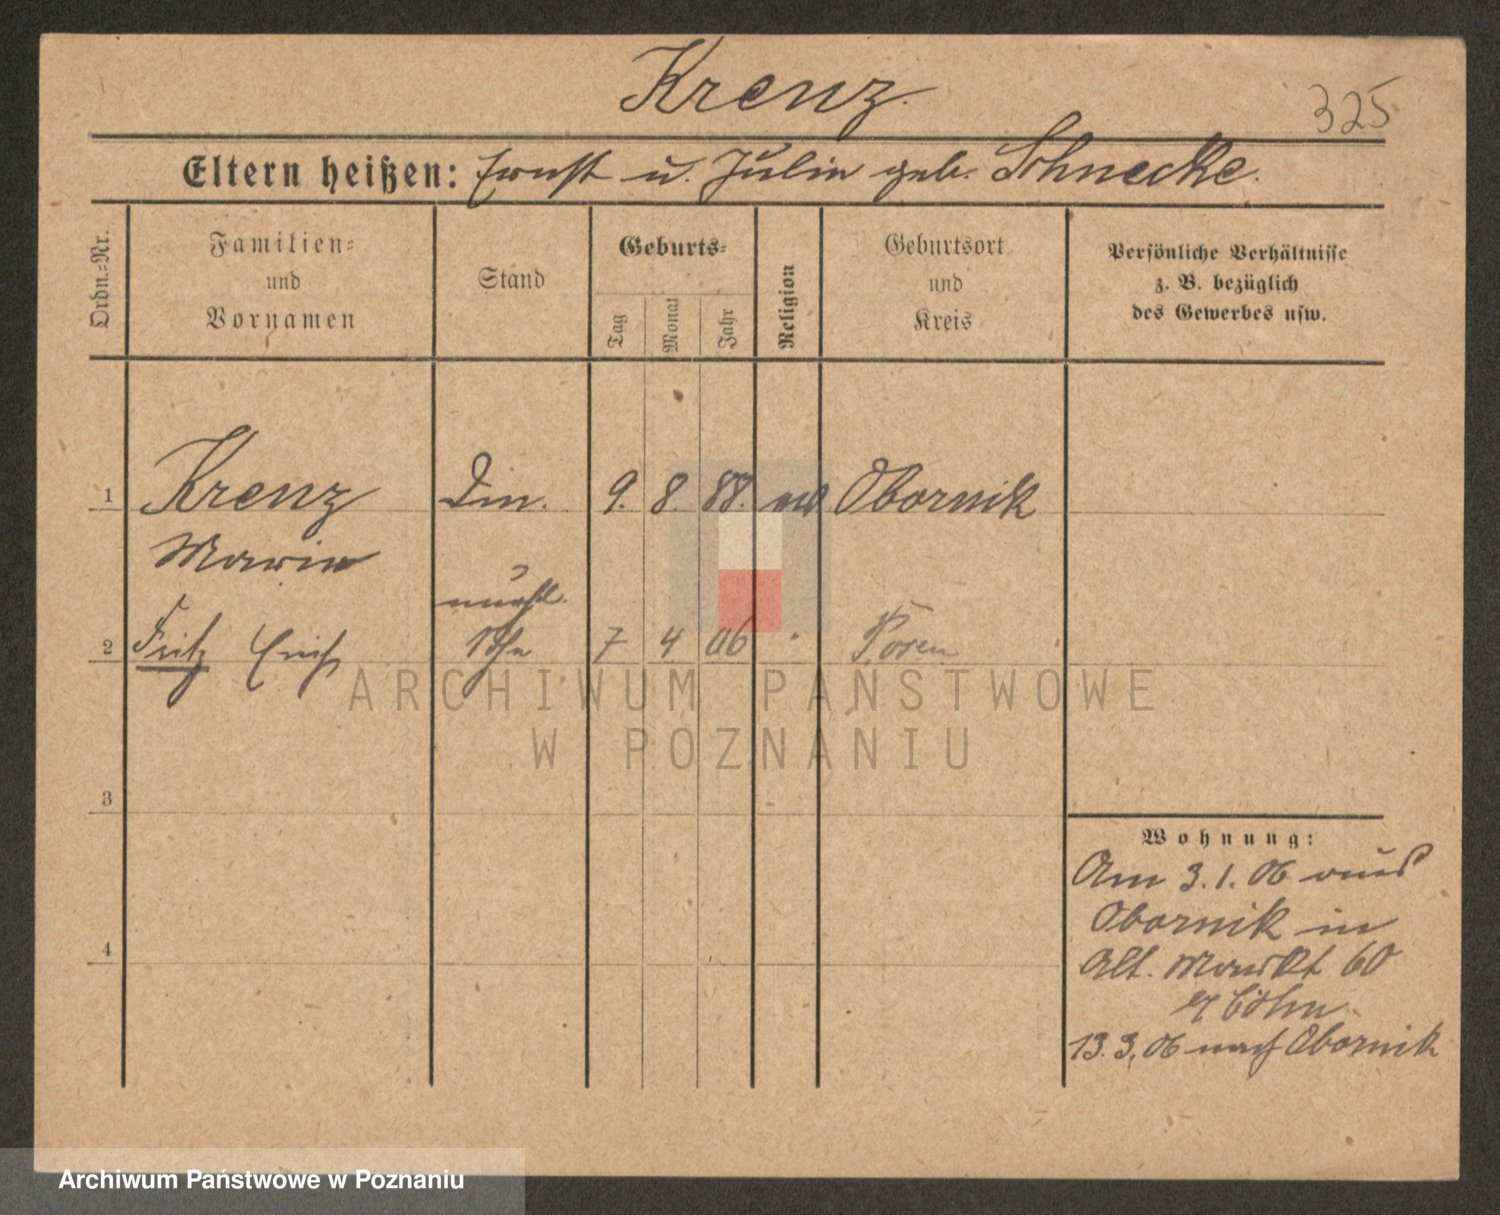 Krenz.
325
Eltern heißen: Ernst u. Julie geb. Schnecke.
Ordn.=Nr.
Familien=
und
Vornamen
Stand
Geburts=
Tag
Monat
Jahr
Religion
Geburtsort
und
Kreis
Persönliche Verhältnisse
z. B. bezüglich
des Gewerbes usw.
1 Krenz Din. 9. 8. 88. Obornik
Marie
2 Fritz Erich 7 4 06 Posen
3
4
ARCHIWUM PAŃSTWOWE
W POZNANIU
Wohnung:
Am 3.1.06 aus
Obornik in
Alt. Markt 60
13.3.06 nach Obornik
Archiwum Państwowe w Poznaniu